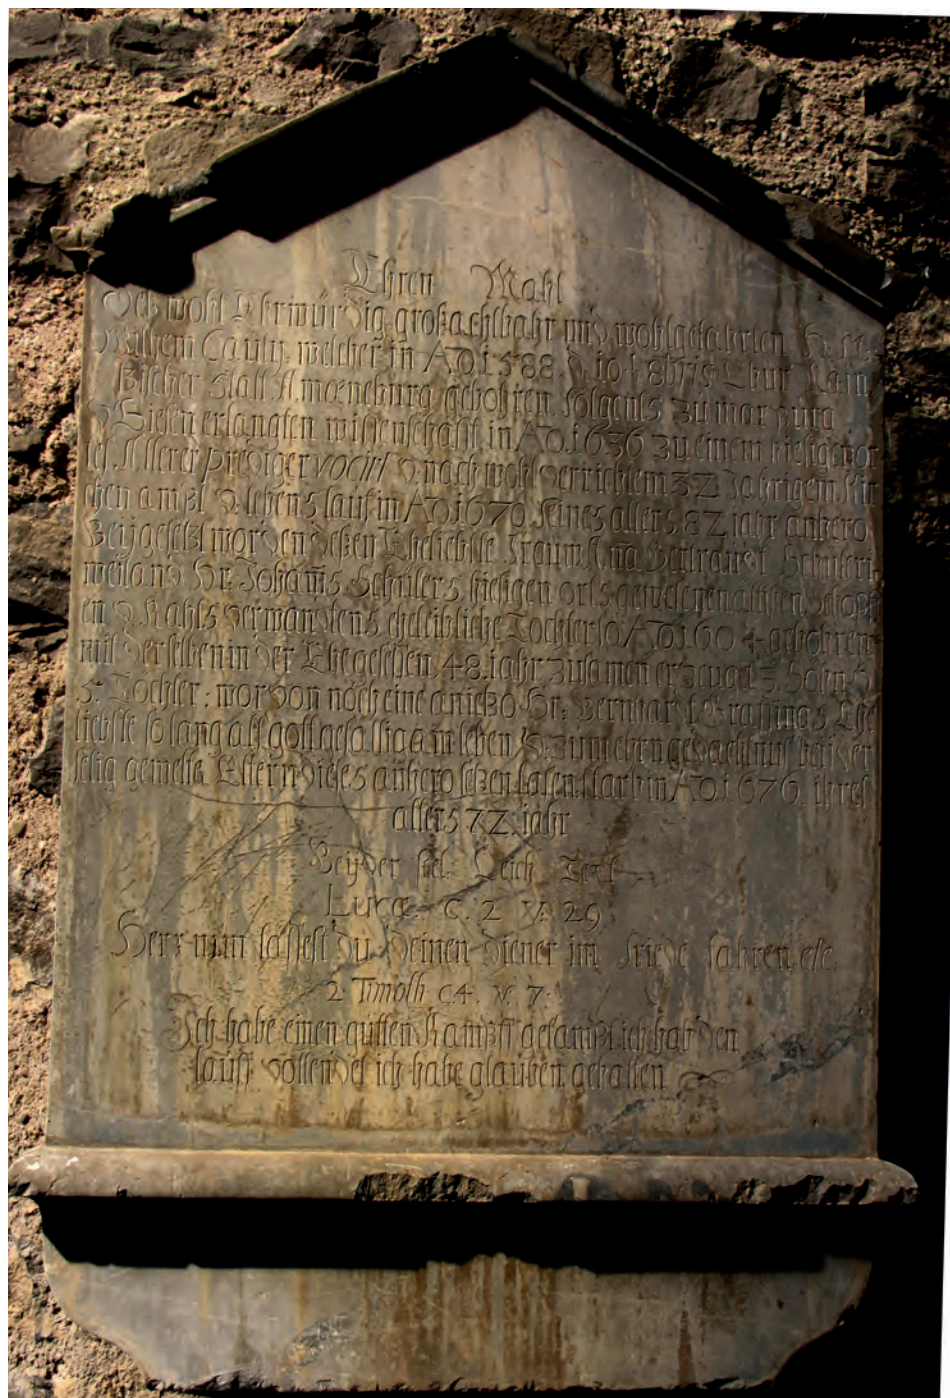 Ehren Mahl
Des wohl Ehrwürdig großachtbahr und wohlgelahrten H:
Wilhem Cauty: welcher in AO.1588. d 10. 8bris Chur Main
tzischer statt Amœneburg gebohren. folgents zu marpurg
v Giesen erlangten wissenschafft in AO.1636 zu einem hiesigenor
vocirt v nach wohl verrichtem 32 Jahrigem kir
chen ampt v lebens lauf in AO.1670. seines alters 82 iahr anhero
Beÿgesetzt worden deßen Eheliebste
weiland Hr. Johañs Schülers hiesigen orts gewesenen
en v Rahts verwandtens eheleibliche Tochter so AO.1604 gebohren
mit derselben in der Ehe gesessen 48. iahr zusamen erzeuget 3. Söhn v
5: Tochter: worvon noch eine anietzo Hr: Bernhardt Grassings Ehe
liebste so lang alß gott gefallig am leben
selig gewesse Eltern dieses anhero setzen lasen. starb in AO.1676. ihres
alters 72. iahr
Beÿ der seel. Leich Text
Lucæ. C. 2 V. 29
Herr nun lässest du deinen diener im friede fahren. etc.
2 Timoth C4. v. 7.
Ich habe einen gutten Kampff gekämpft ich hab den
lauff vollendet ich habe glauben gehalten